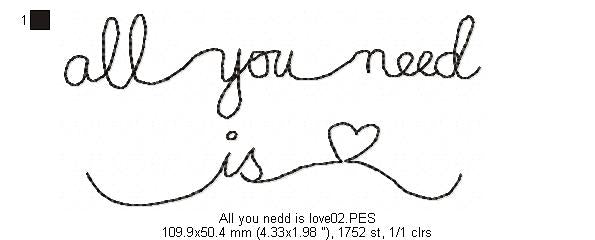 1
all you need
is
All you nedd is love02.PES
109.9x50.4 mm (4.33x1.98 "), 1752 st, 1/1 clrs